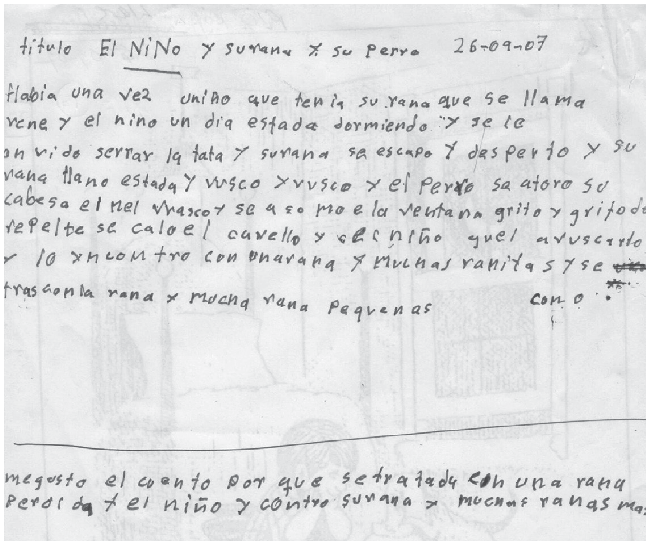 titulo El NiNo y surana y su perro 26-09-07
Habia una vez uniño que tenia su rana que se llama
rene y el nino un dia estada dormiendo y se le
on vido serrar la tata y surana se escapo y desperto y su
rana llano estada y vusco yvusco y el perro sa atoro su
cabesa el nel vrasco y se a so mo e la ventana grito y grito de
repelte se calo el cavello y el niño quel avuscarlo
y lo yncontro con unarana y muchas ranitas y se
tras conla rana y mucha rana pequenas con o
megusto el cuento por que setratada con una rana
perdida y el niño y contro surana y muchas ranas mas